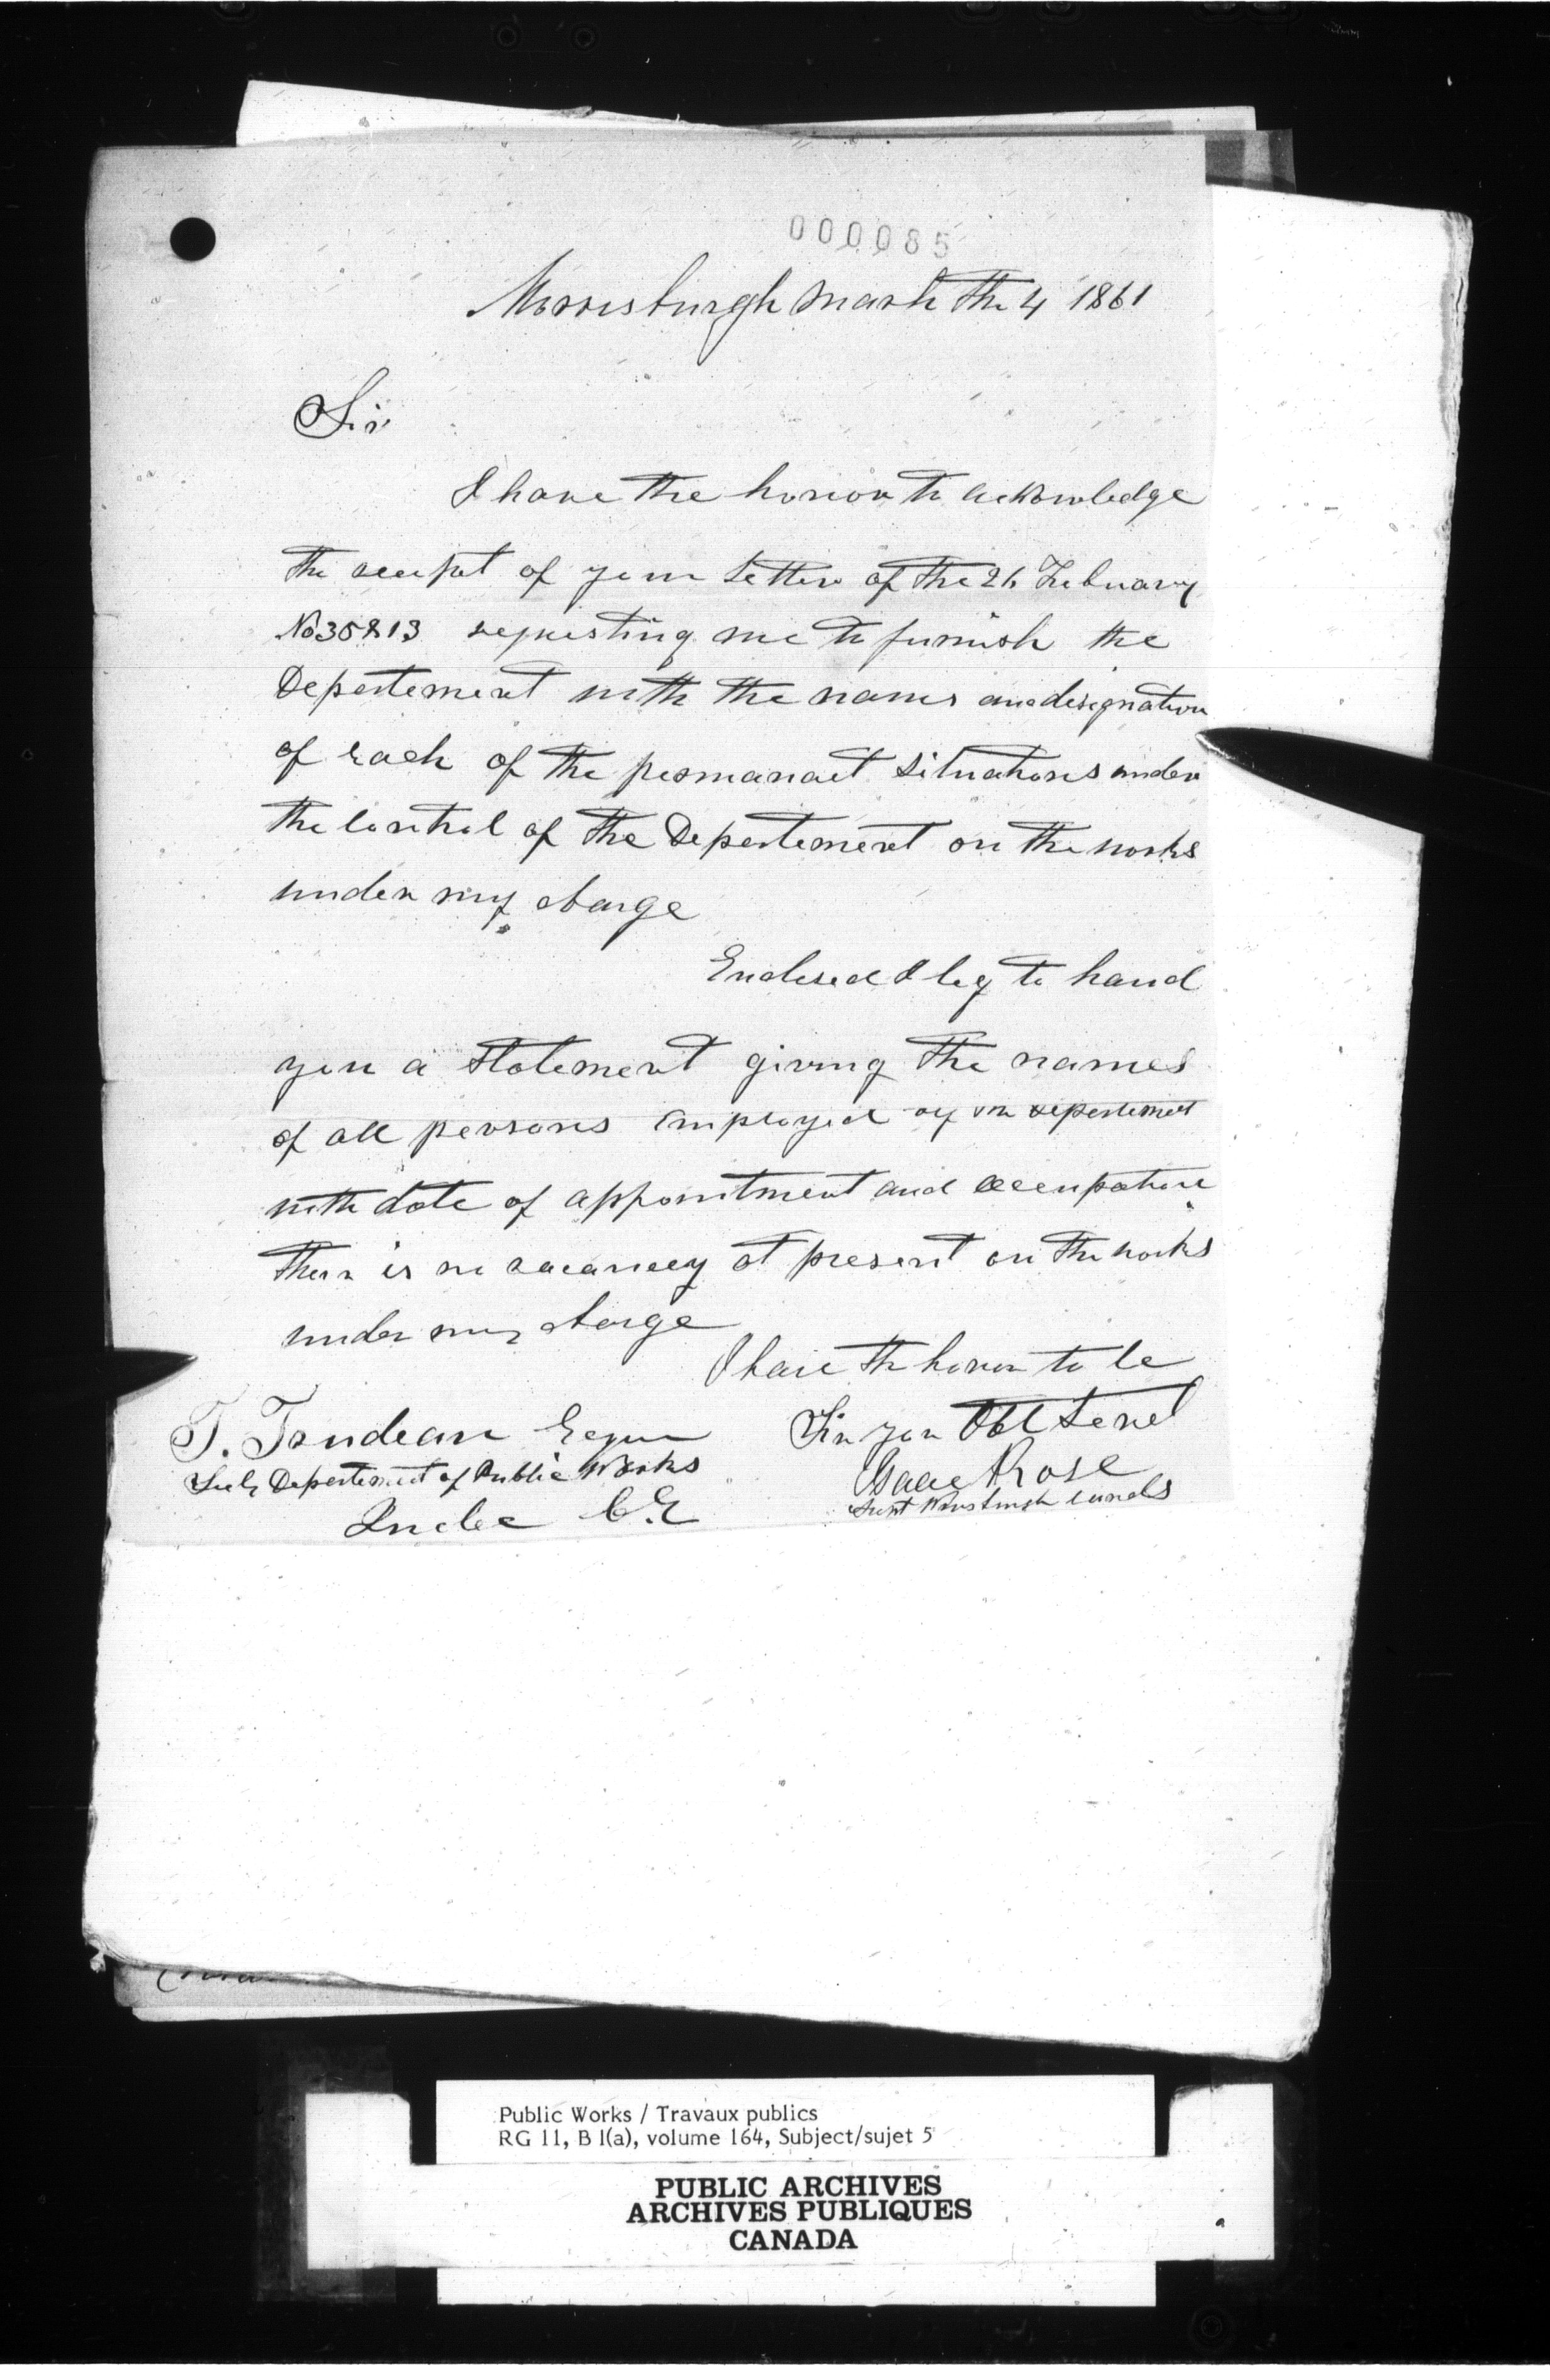 000085
Morrisburgh March the 4 1861
Sir
I have the honor to acknowledge
the receipt of your letter of the 26 February
No 35813 requesting me to furnish the
Departement with the names and designation
of each of the permanant situations under
the control of the Departement on the works
under my charge
Enclosed I beg to hand
you a statement giving the names
of all persons employed by the departement
with date of appointment and occupation
there is no vacancy at present on the works
under my charge
I have the honor to be
Sir your Obt Servt
T. Trudeau Esqur
Isaac Rose
Secty Departement of Public Works
Supt Wmsburgh canals
Quebec C.E
Public Works / Travaux publics
RG 11, B 1(a), volume 164, Subject/sujet 5
PUBLIC ARCHIVES
ARCHIVES PUBLIQUES
CANADA